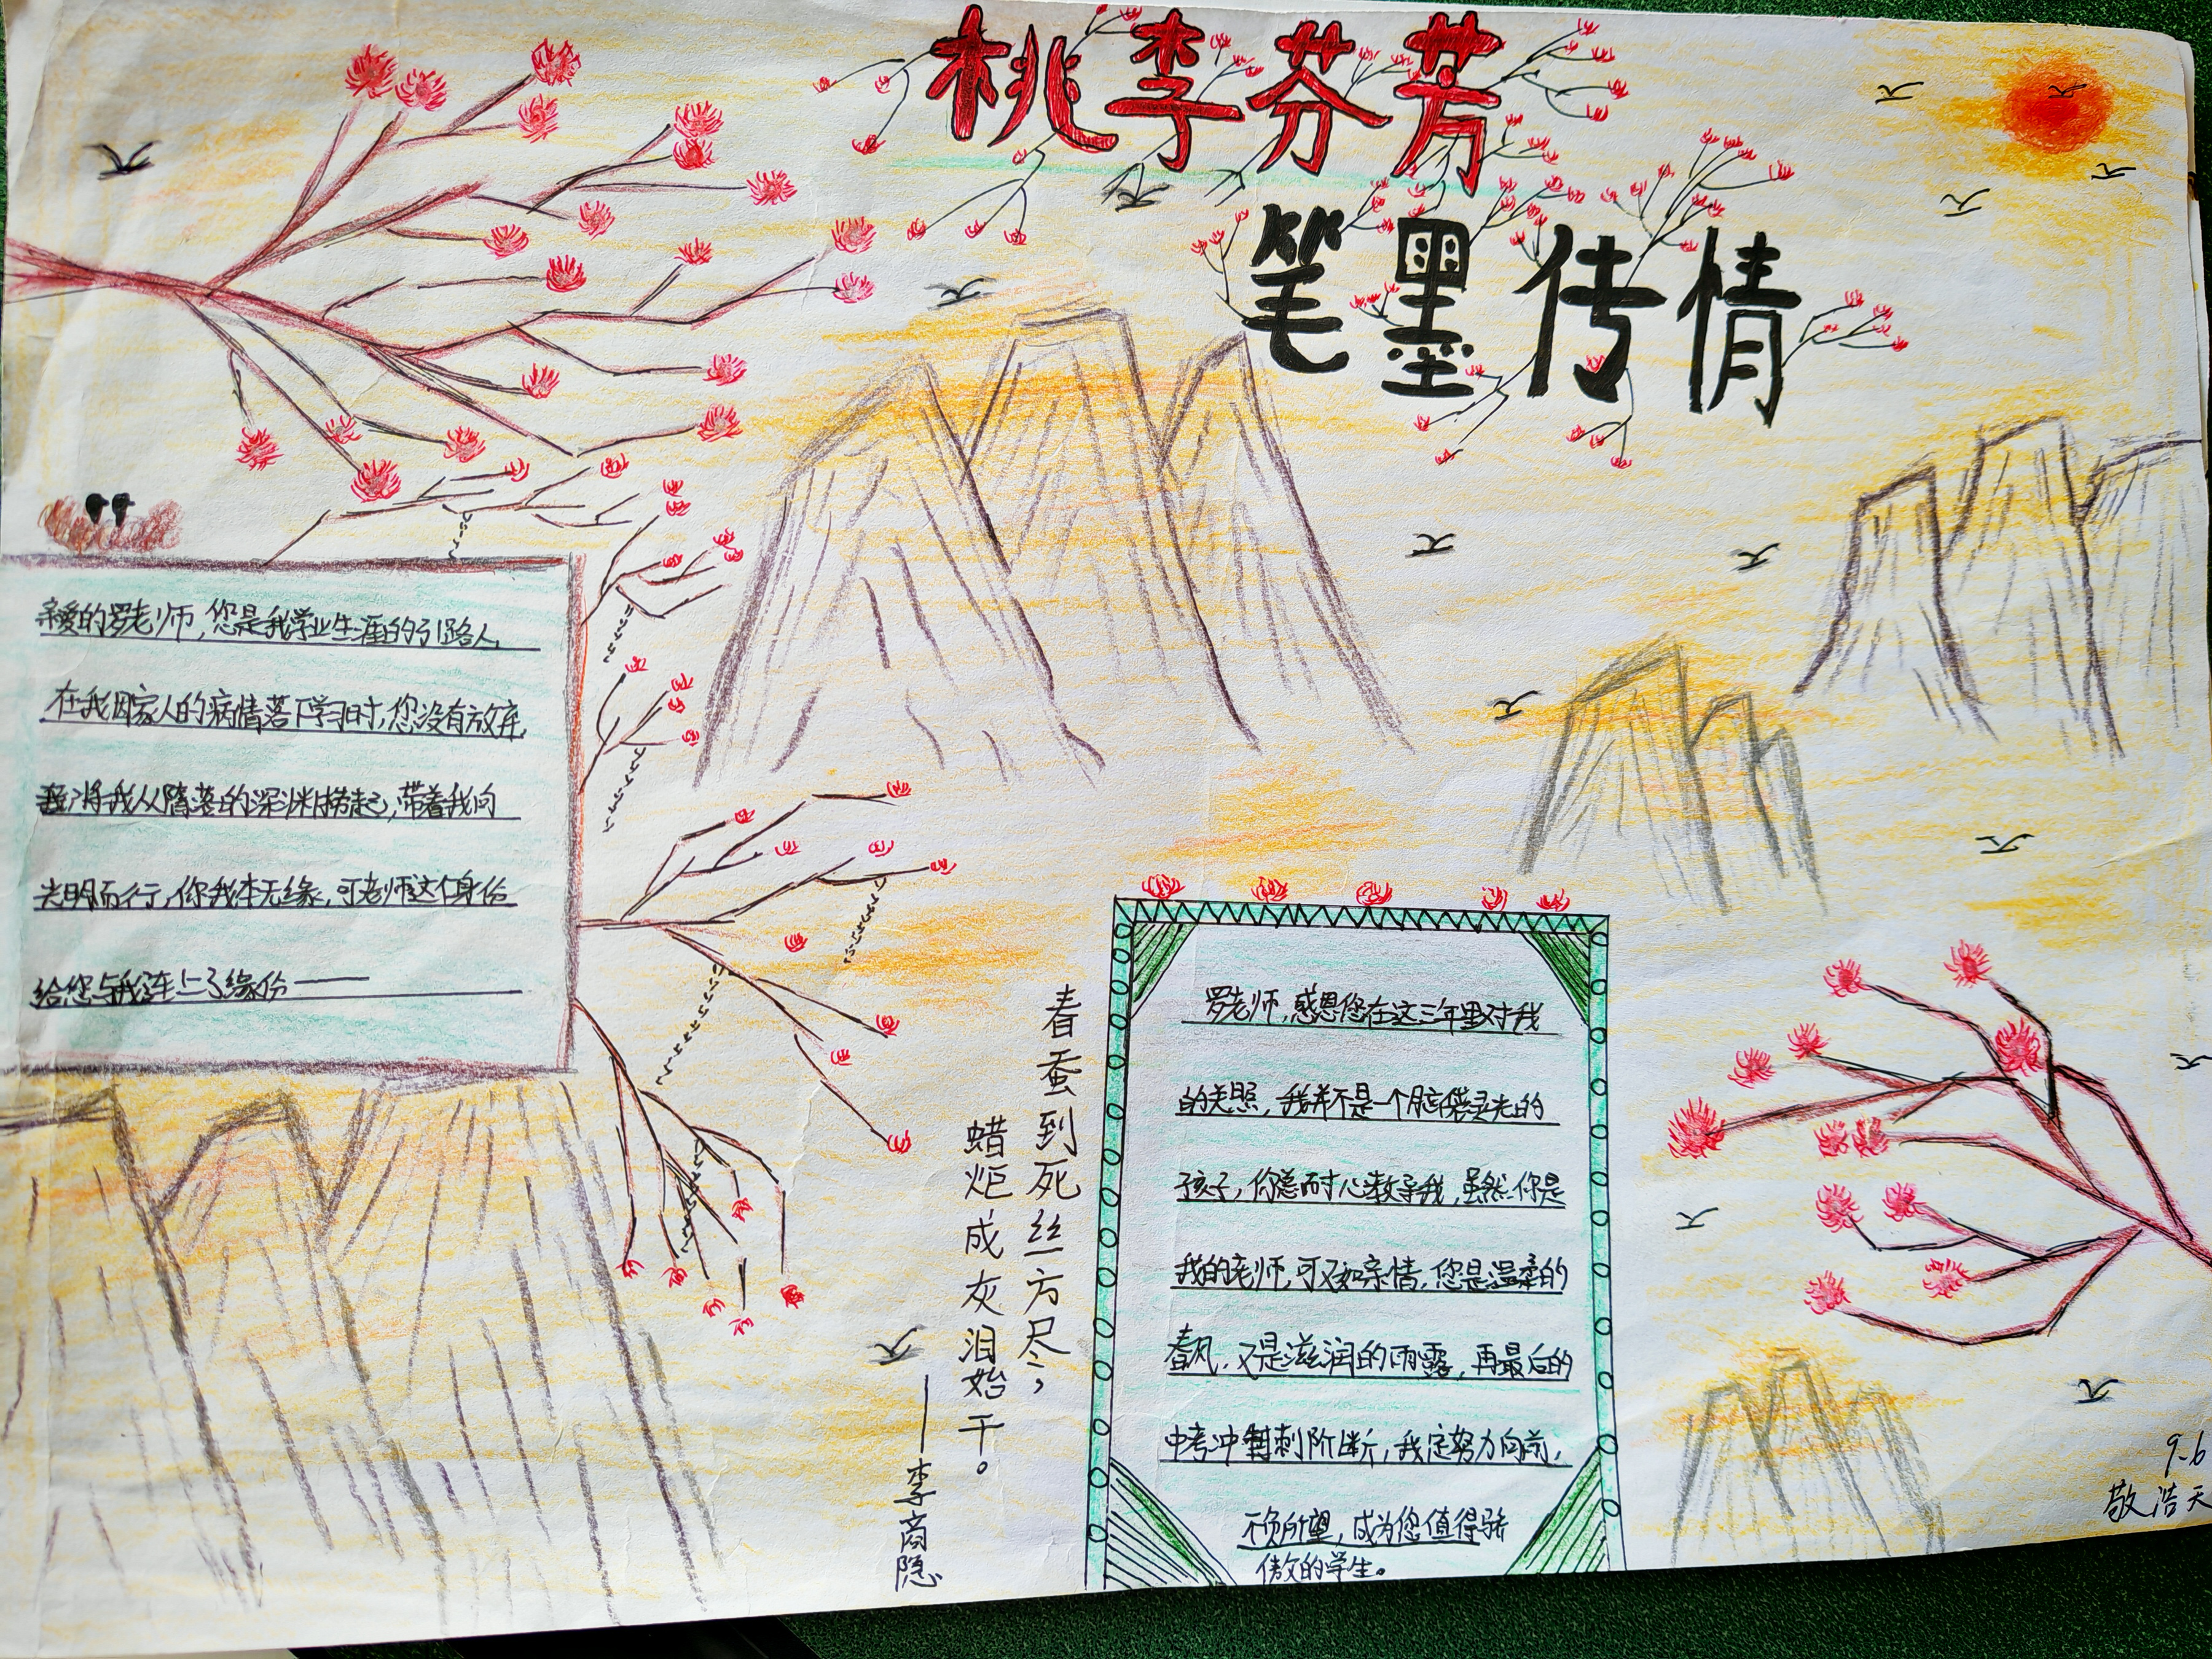 桃李芬芳
笔墨传情
亲爱的罗老师,您是我学业生涯的引路人,
在我因家人的病情落下学习时,您没有放弃,
将我从堕落的深渊捞起,带着我向
光明而行,你我本无缘,可老师这个身份
给您与我连上了缘份——
春蚕到死丝方尽;
蜡炬成灰泪始干。
——李商隐
罗老师,感恩您在这三年里对我
的关照,我并不是一个脑袋灵光的
孩子,你总耐心教导我,虽然你是
我的老师,可又如亲情,您是温柔的
春风,又是滋润的雨露,再最后的
中考冲刺阶断,我定努力向前,
不负所望,成为您值得骄
傲的学生。
9-6
敬浩天